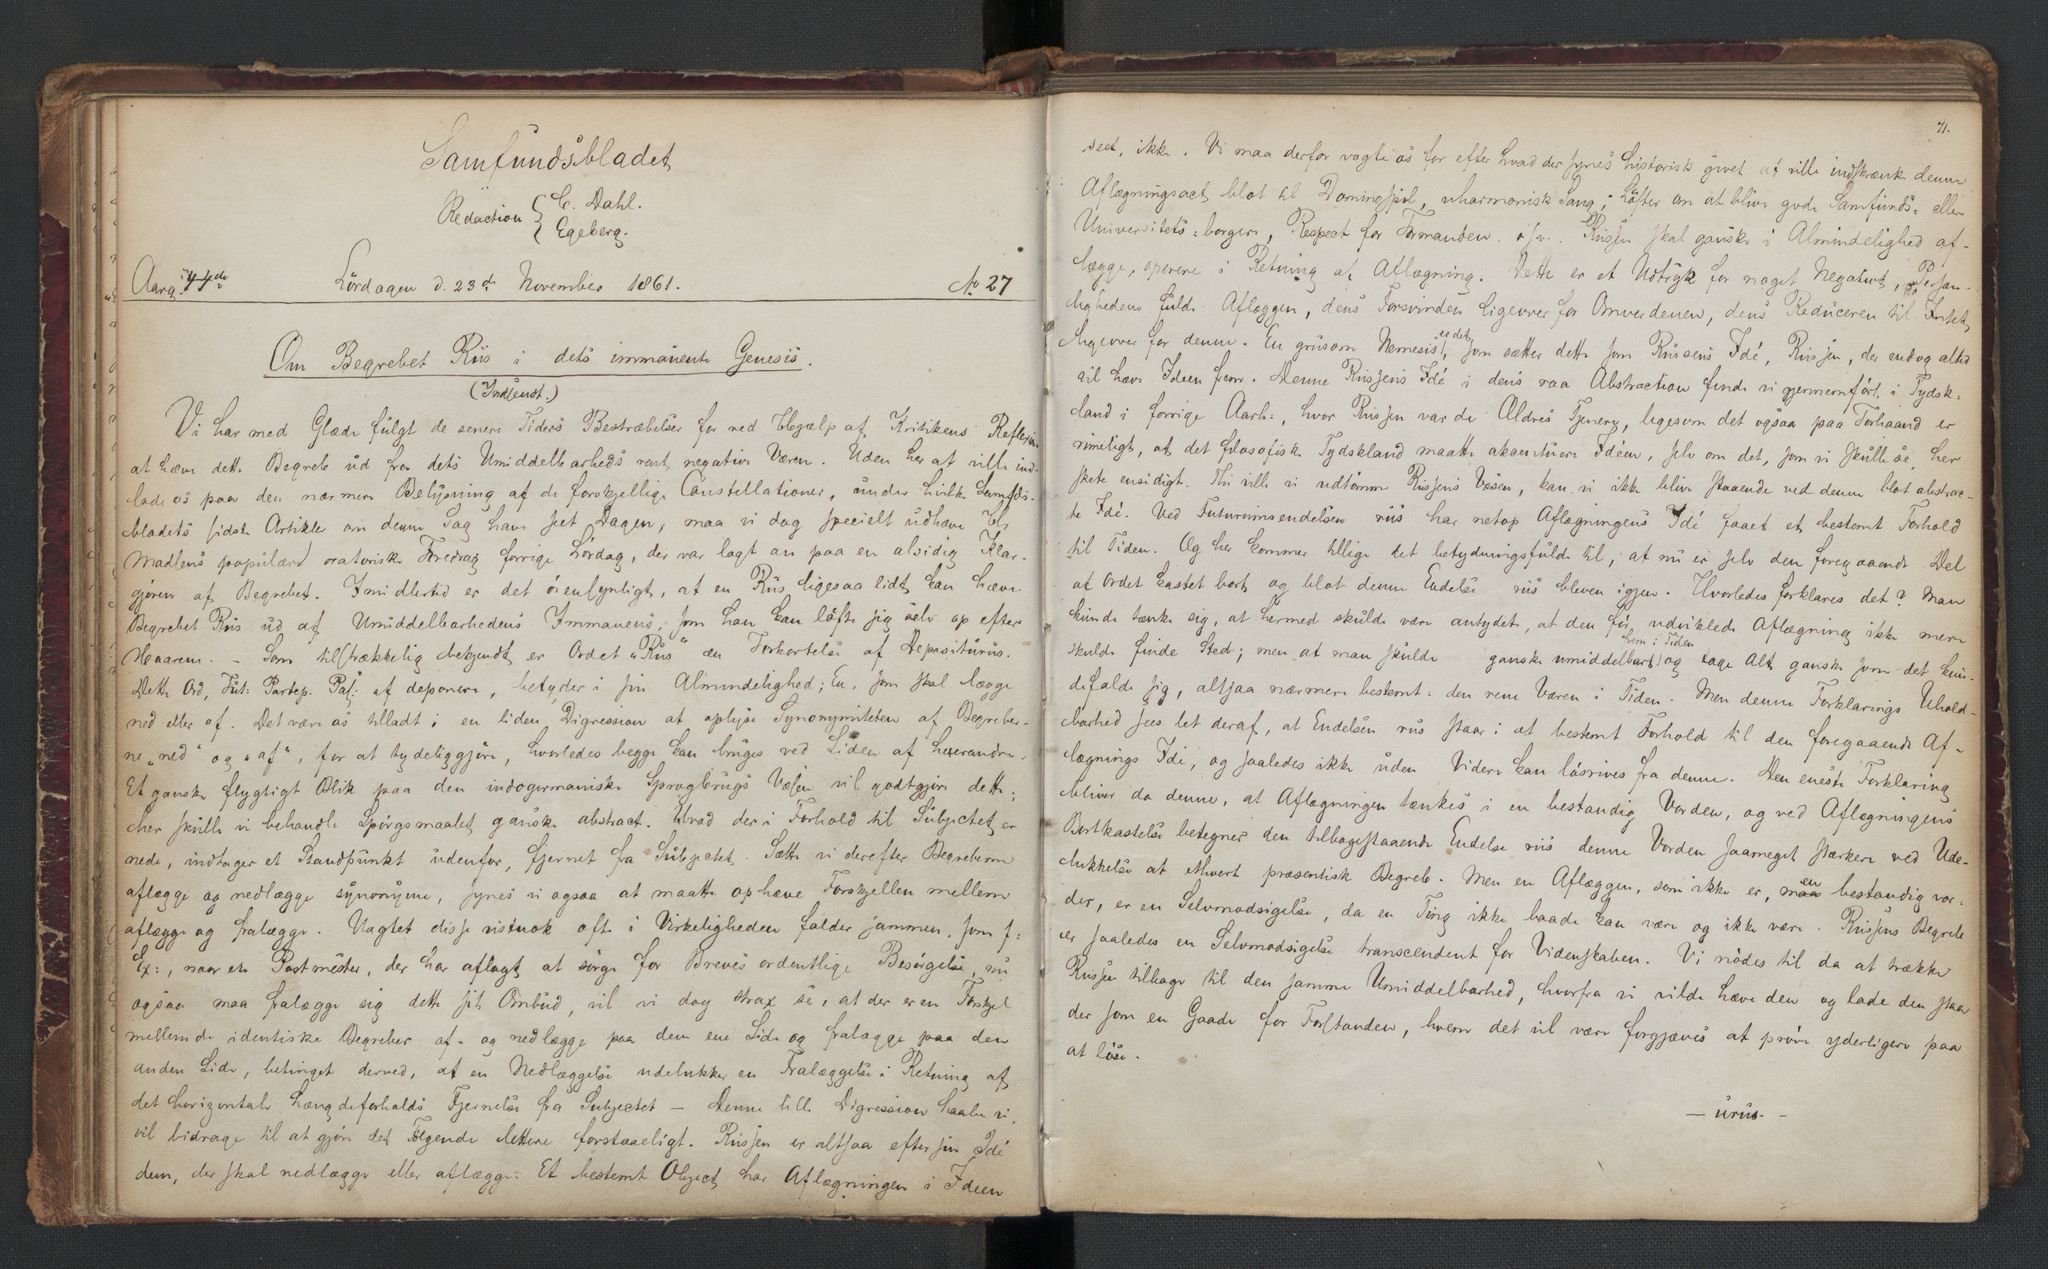 Samfundsbladet
Redaction { C. Dahl.
Egeberg.
Aarg. 44de Lördagen d. 23de November 1861. No 27
Om Begrebet Rus i dets immanente Genesis.
(Indsendt.)
Vi har med Glæde fulgt de senere Tiders Bestræbelser for ved Hjælp af Kritikens Reflexion
at hæve dette Begreb ud fra dets Umiddelbarheds rent negative Væren. Uden her at ville ind-
lade os paa den nærmere Belysning af de forskjellige Constellationer, under hvilke Samfds-
bladets sidste Artikler om denne Sag have seet Dagen, maa vi dog specielt udhæve Hr
Madsens populære oratoriske Foredrag forrige Lördag, der var lagt an paa en alsidig Klar-
gjören af Begrebet. Imidlertid er det öiensynligt, at en Rus ligesaalidt kan hæve
Begrebet Rus ud af Umiddelbarhedens Immanens, som han kan löfte sig selv op efter
Haarene. – Som tilstrækkelig bekjendt er Ordet „Rus" en Forkortelse af Depositurus.
Dette Ord, Fut: Partcp. Pas: af deponere, betyder i sin Almindelighed; En, som skal lægge
ned eller af. Det være os tilladt i en liden Digression at oplyse Synonymiteten af Begreber-
ne „ned" og „af", for at tydeliggjöre, hvorledes begge kan bruges ved Siden af hverandre.
Et ganske flygtigt Blik paa den indogermaniske Sprogbrugs Væsen vil godtgjöre dette;
her skulle vi behandle Spörgsmaalet ganske abstract. Hvad der i Forhold til Subjectet er
nede, indtager et Standpunkt udenfor, fjernet fra Subjectet. Sætte vi derefter Begreberne
aflægge og nedlægge synonyme, synes vi ogsaa at maatte ophæve Forskjellen mellem
aflægge og fralægge. Uagtet disse vistnok ofte i Virkeligheden falder sammen, som f:
Ex:, naar en Postmester, der har aflagt at sörge for Brevets ordentlige Besörgelse, nu
ogsaa maa fralægge sig dette sit Ombud, vil vi dog strax se, at der er en Forskjel
mellem de identiske Begreber af- og nedlægge paa den ene Side og fralægge paa den
anden Side, betinget derved, at en Nedlæggelse udelukker en Fralæggelse i Retning af
det horizontale Længdeforholds Fjernelse fra Subjectet – Denne lille Digression haabe vi,
vil bidrage til at gjöre det Fölgende lettere forstaaeligt. Russen er altsaa efter sin Idé
den, der skal nedlægge eller aflægge. Et bestemt Object har Aflægningen i Ideen
71.
seet, ikke. Vi maa derfor vogte os for efter hvad der synes historisk givet at ville indskrænke denne
Aflægningsact blot til Dominospil, uharmonisk Sang, Löfter om at blive gode Samfunds- eller
Universitets-borgere, Respect for Formanden o.s.v. Russen skal ganske i Almindelighed af-
lægge, operere i Retning af Aflægning. Dette er et Udtryk for noget Negativt, Person-
lighedens fulde Aflæggen, dens Forsvinden ligeover for Omverdenen, dens Reduceren til Intet
ligeover for denne. En grusom Nemesis er det, som sætter dette som Russens Idé, Russen, der endog altid
vil hæve Ideen frem. Denne Russens Idé i dens raa Abstraction finde vi gjennemfört i Tydsk-
land i forrige Aarh:, hvor Russen var de Ældres Tjener, ligesom det ogsaa paa Forhaand er
rimeligt, at det filosofiske Tydskland maatte akcentuere Idéen, selv om det, som vi skulle se, her
skete ensidigt. Thi ville vi udtömme Russens Væsen, kan vi ikke blive staaende ved denne blot abstrac-
te Idé. Ved Futurumsendelsen rus har netop Aflægningens Idé faaet et bestemt Forhold
til Tiden. Og her kommer tillige det betydningsfulde til, at nu er selv den foregaaende Del
af Ordet kastet bort og blot denne Endelse rus bleven igjen. Hvorledes forklares det? Man
kunde tænke sig, at hermed skulde være antydet, at den för udviklede Aflægning ikke mere
skulde finde Sted; men at man skulde ganske umiddelbart som i Tiden og tage Alt ganske som det kun-
de falde sig, altsaa nærmere bestemt: den rene Væren i Tiden. Men denne Forklarings Uhold-
barhed sees let deraf, at Endelsen rus staar i et bestemt Forhold til den foregaaende Af-
lægnings Idé, og saaledes ikke uden Videre kan lösrives fra denne. Den eneste Forklaring
bliver da denne, at Aflægningen tænkes i en bestandig Vorden, og ved Aflægningens
Bortkastelse betegner den tilbagestaaende Endelse rus denne Vorden saameget stærkere ved Ude-
lukkelse af ethvert præsentisk Begreb. Men en Aflæggen, som ikke er, men bestandig vor-
der, er en Selvmodsigelse, da en Ting ikke baade kan være og ikke være. Russens Begreb
er saaledes en Selvmodsigelse transcendent for Videnskaben. Vi nödes til da at trække
Russen tilbage til den samme Umiddelbarhed, hvorfra vi vilde hæve den og lade den staa
der som en Gaade for Forstanden, hvem det vil være forgjæves at pröve yderligere paa
at löse.
– urus. –